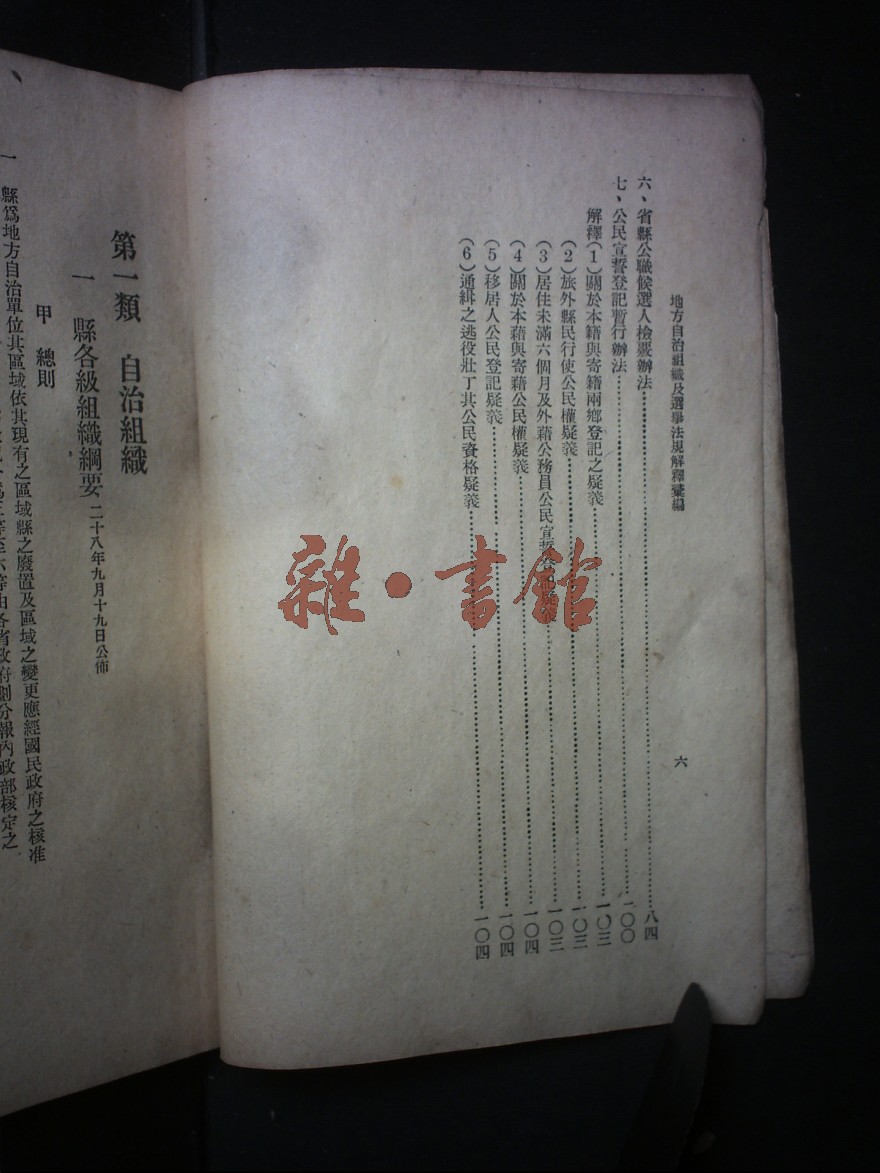 地方自治組織及選舉法規解釋彙編
六
六、省縣公職候選人檢覈辦法……八四
七、公民宣誓登記暫行辦法……一〇〇
解釋(1)關於本籍與寄籍兩鄉登記之疑義……一〇三
(2)旅外縣民行使公民權疑義……一〇三
(3)居住未滿六個月及外藉公務員公民宣誓……一〇三
(4)關於本藉與寄藉公民權疑義……一〇四
(5)移居人公民登記疑義……一〇四
(6)通緝之逃役壯丁其公民資格疑義……一〇四
雜·書館
第一類 自治組織
一 縣各級組織綱要 二十八年九月十九日公佈
甲 總則
一 縣爲地方自治單位其區域依其現有之區域縣之廢置及區域之變更應經國民政府之核准
等至六等由各省政府劃分報內政部核定之